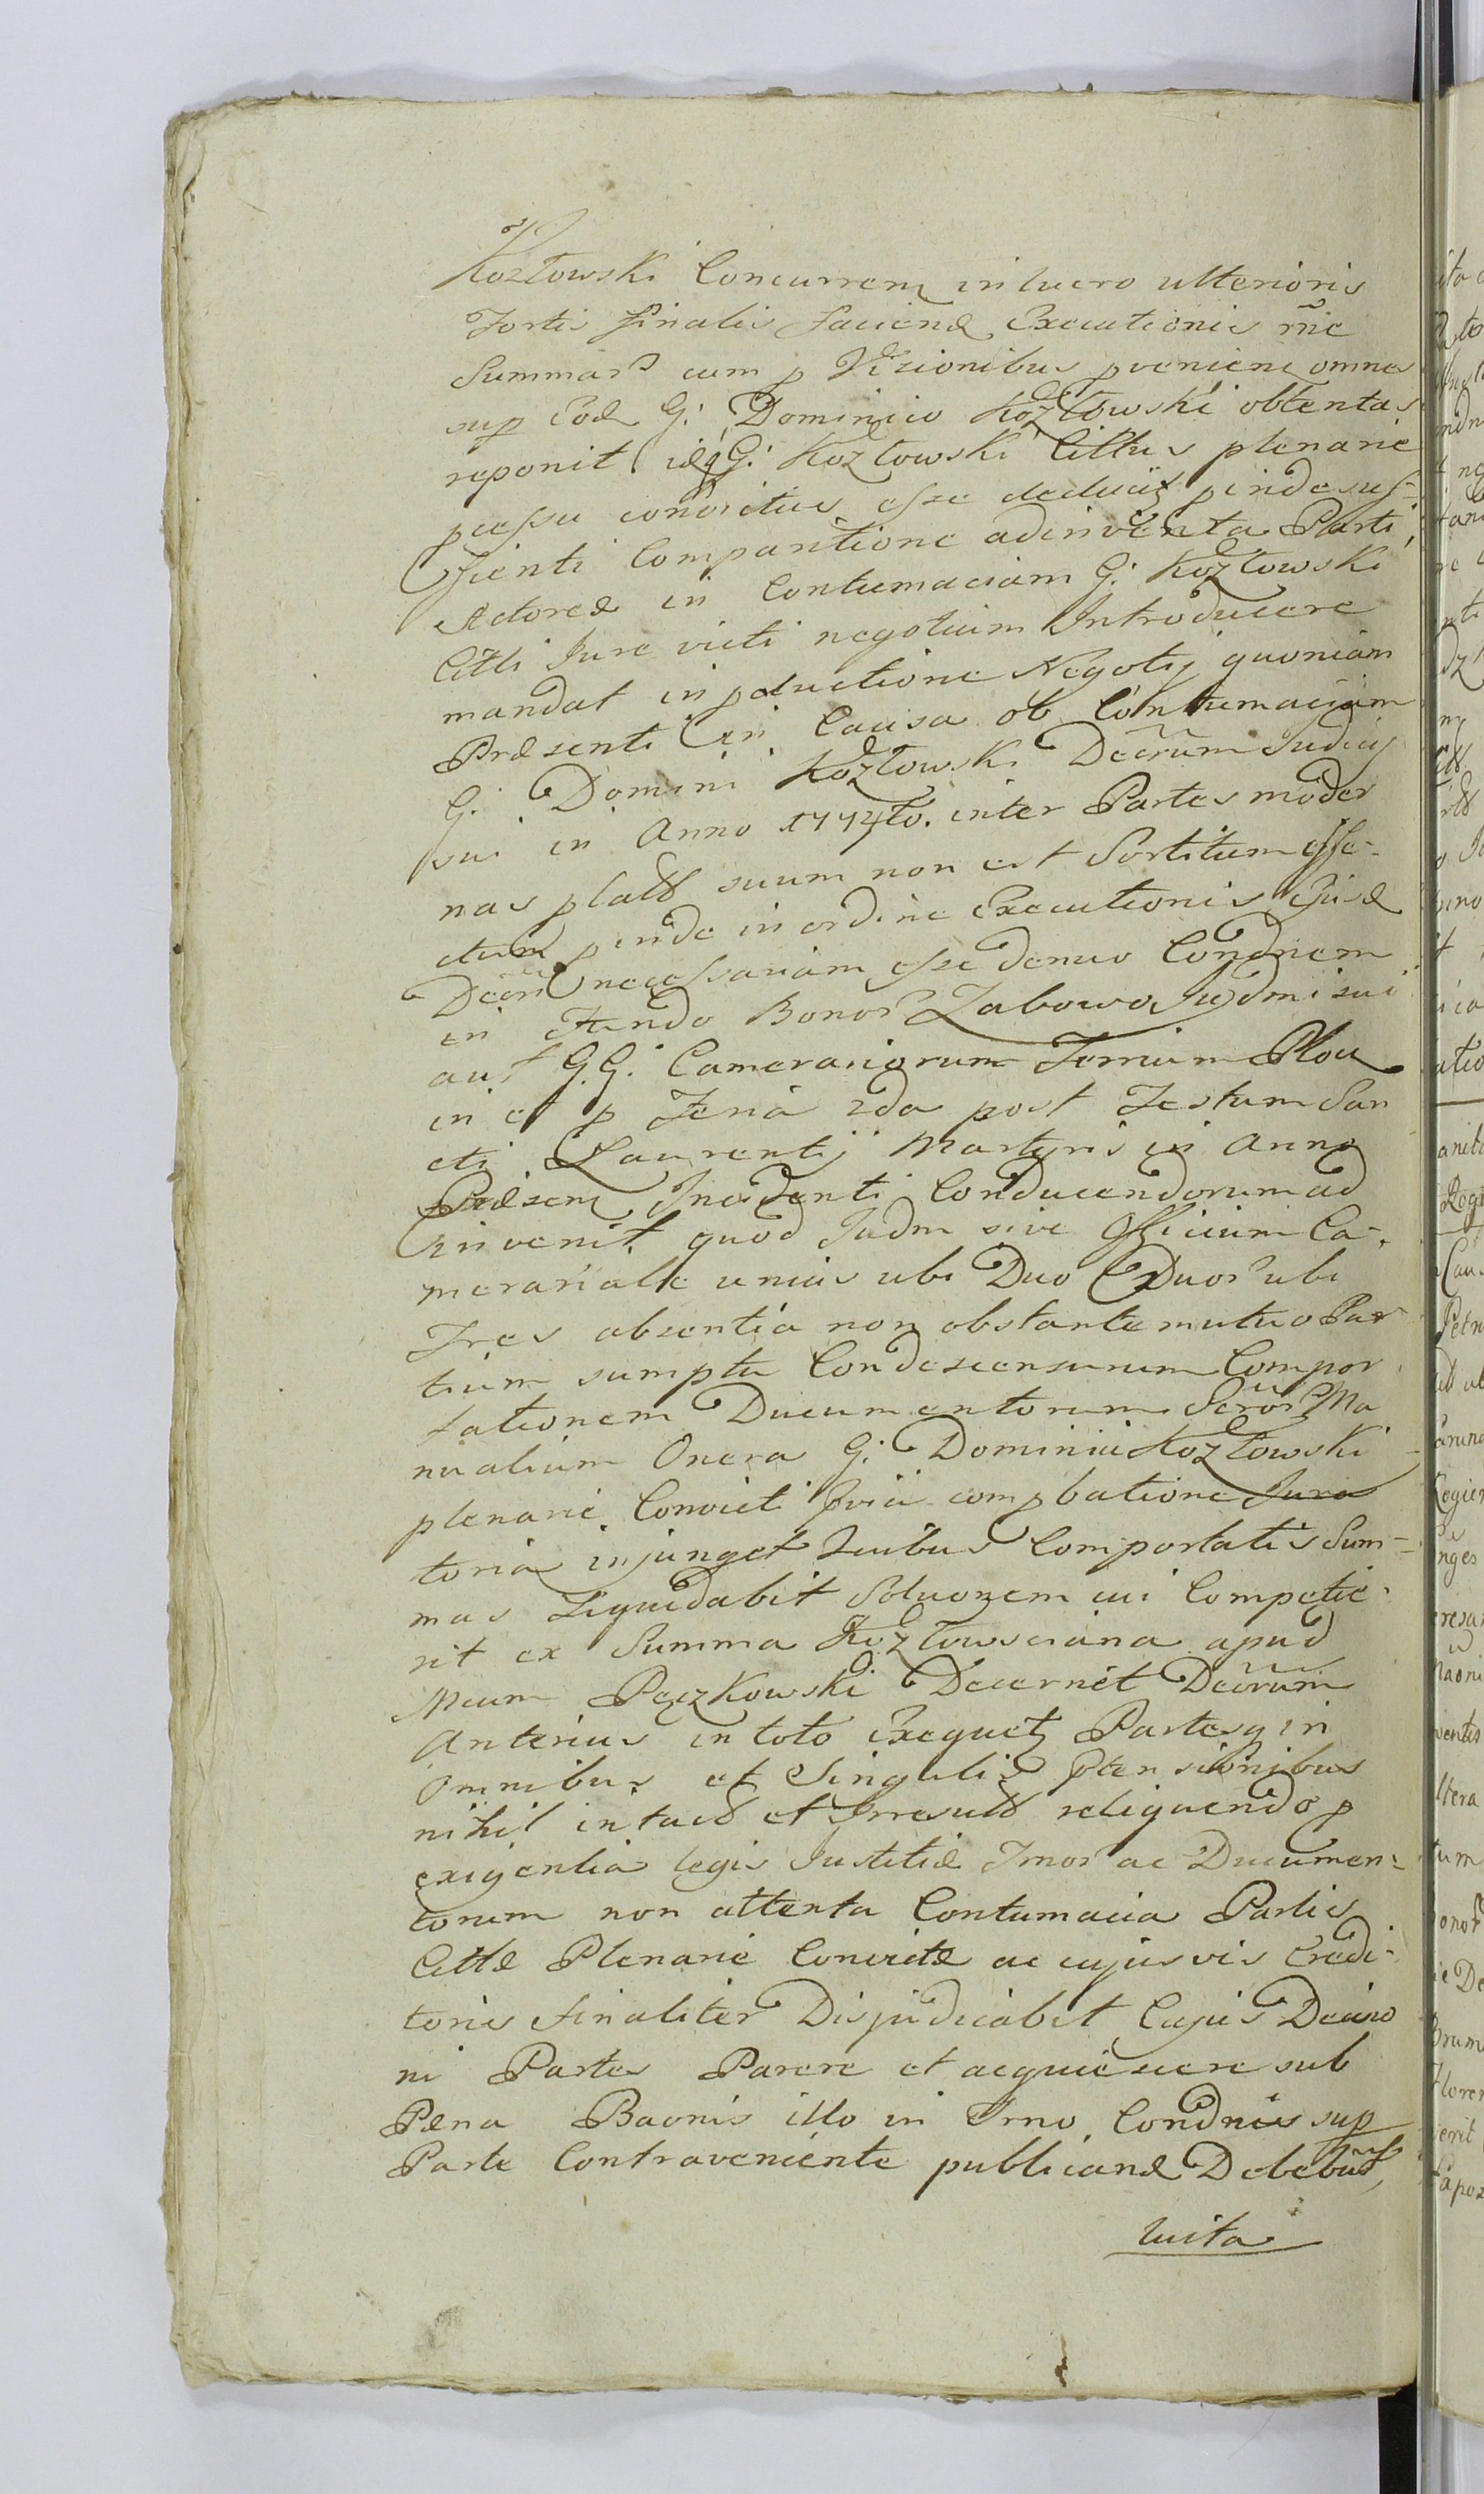 Kozłowski Concurren in lucro ulterioris
Fortis finalis faciend Executionis rñe
Summar cum p Visionibus pvenien omnes
sup Eod G: Dominico Kozłowski obtentas
reponit idq G: Kozłowski Cittus plenarie
pcessu convictus esse deducit pinde suf-
ficienti Comparitione adinventa Parti
Actoreæ in Contumaciam G: Kozłowski
Citti Jure victi negotium Introducere
mandat in pductione Negotij quoniam
Præsenti in Causa ob Contumaciam
G: Domini Kozłowski Decrum Judicij
sui in Anno 1774to. inter Partes moder
nas platt suum non est Sortitum effe-
ctum pinde in ordine Executionis ejusd
Decri necessariam esse denuo Condnem
in fundo Bonor Zabowo Judmi sui
aut G.G. Camerariorum Terrium Plou
in et p Feria 2da post Festum San
cti Laurentij Martyris in Anno
Præsen Incidenti Conducendorum ad
invenit quod Judm sive Officium Ca-
merariale unius ubi Duo Duor ubi
Tres absentia non obstante mutuo Par
tium sumptu Condescensurum Compor
tationem Ducumentorum Scror Ma
nualium Onera G: Dominici Kozłowski
plenarie Convicti prvia compbatione Jura
toria injunget quibus Comportatis Sum-
mas Liquidabit Soluonem cui Competie-
rit ex Summa Kozłowsciana apud
Mcum Pęczkowski Decernet Decrum
Anterius in toto Exequet Partesq in
Omnibus et Singulis ptensionibus
nihil intact et Irresult reliquendo p
exigentia legis Justitiæ Jnor ac Ducumen-
torum non attenta Contumacia Partis
Cittæ Plenarie Convictæ ac cujusvis Credi-
toris finaliter Disjudicabit Cujus Deciso
ni Partes Parere et acquiescere sub
Pæna Baonis illo in Trno Condnis sup
Parte Contraveniente publicand Debebunt
lucita